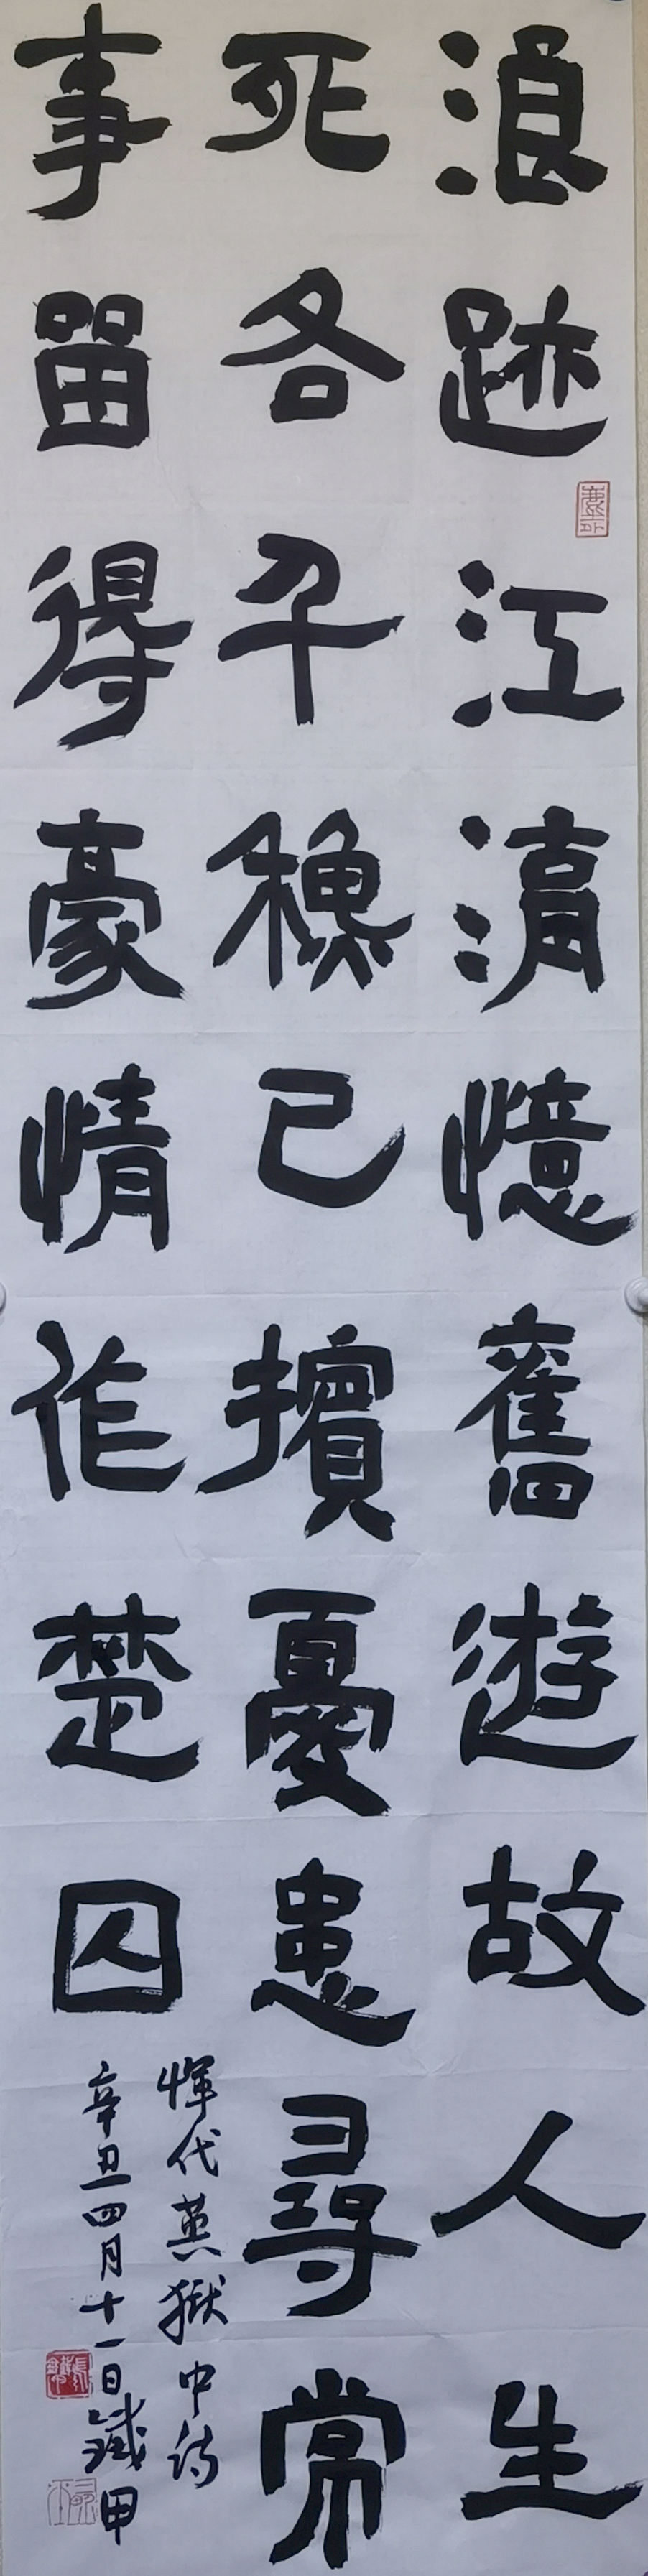 浪跡江湖憶舊遊故人生
死各千穐已擯憂患尋常
事留得豪情作楚囚
惲代英獄中詩
辛丑四月十一日鐵甲